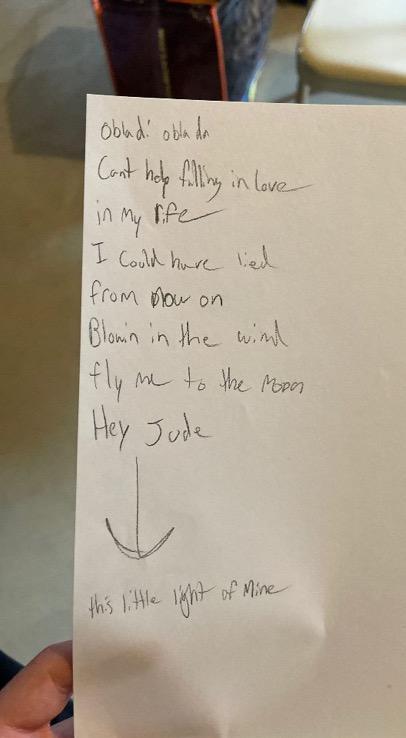 Obladi obla da
Cant help falling in love
in my life
I Could have lied
from now on
Blowin in the wind
fly me to the moon
Hey Jude
this little light of Mine